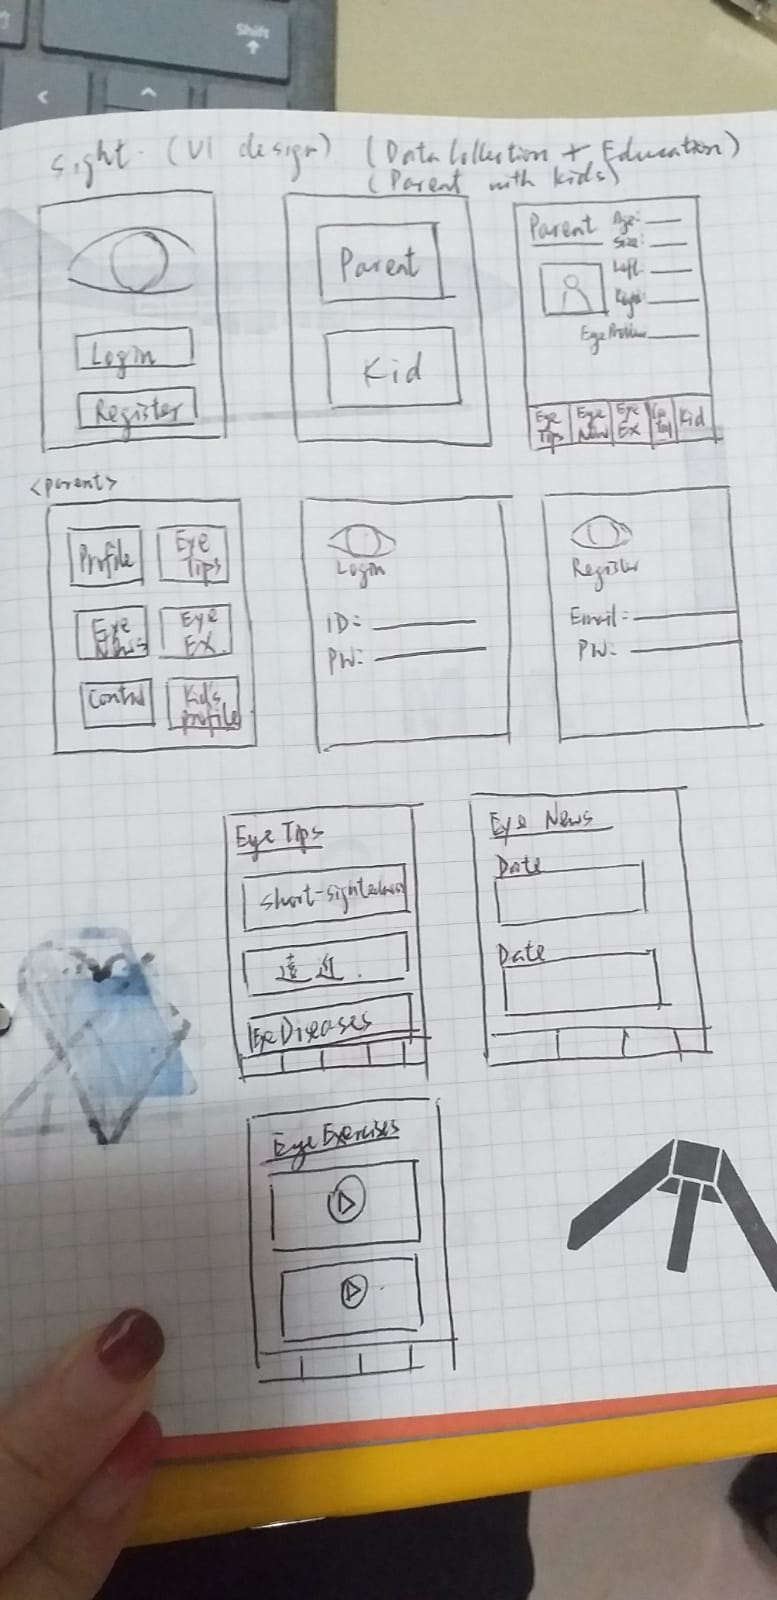 Shift
Sight - (UI design) (Data Collection + Education)
(Parent with kids)
Login
Register
Parent
Kid
Parent
Age:
Size:
Left:
Right:
Eye Problem:
Eye Tips
Eye News
Eye Ex
Kid
<parent>
Profile
Eye Tips
Eye News
Eye Ex.
Control
Kid's profile
Login
ID:
PW:
Register
Email:
PW:
Eye Tips
short-sightedness
遠近.
Eye Diseases
Eye News
Date
Date
Eye Exercises